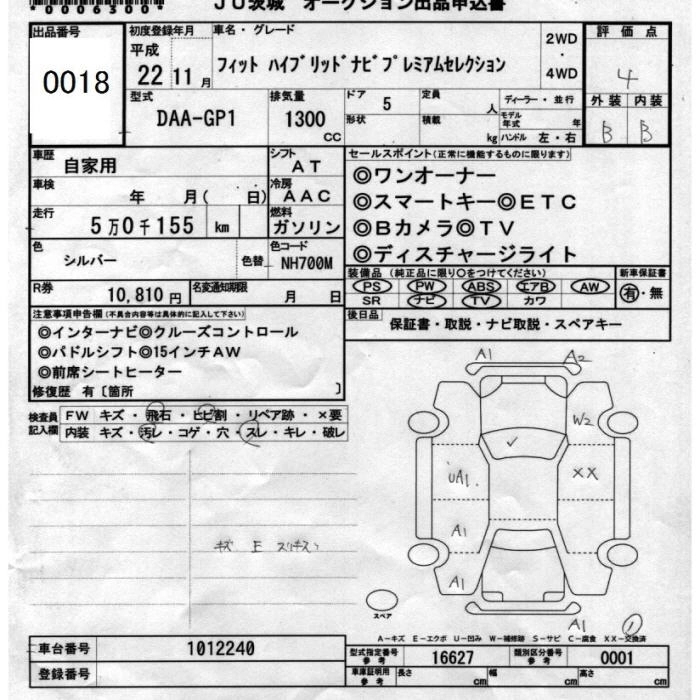 *00063004*
JU茨城 オークション出品申込書
出品番号
0018
初度登録年月
平成
22 11 月
車名・グレード
フィット ハイブリッドナビプレミアムセレクション
2WD
・
4WD
評価点
4
外装 内装
B B
型式
DAA-GP1
排気量
1300
CC
ドア
5
定員
人
ディーラー・並行
形状
積載
kg
モデル年式 年
ハンドル 左・右
車歴
自家用
シフト
AT
車検
年 月( 日)
冷房
AAC
走行
5万0千155 km
燃料
ガソリン
色
シルバー
色替
色コード
NH700M
R券
10,810 円
名変通知期限
月 日
セールスポイント(正常に機能するものに限ります)
◎ワンオーナー
◎スマートキー◎ETC
◎Bカメラ◎TV
◎ディスチャージライト
装備品 (純正品に限り○をつけてください)
PS PW ABS エアB AW
SR ナビ TV カワ
新車保証書
有・無
後日品
保証書・取説・ナビ取説・スペアキー
注意事項申告欄(不具合内容等は具体的に記入して下さい)
◎インターナビ◎クルーズコントロール
◎パドルシフト◎15インチAW
◎前席シートヒーター
修復歴 有〔箇所 〕
検査員記入欄
FW キズ・飛石・ヒビ割・リペア跡・×要
内装 キズ・汚レ・コゲ・穴・スレ・キレ・破レ
キズ E スリキズ
A1 A2
W2
UA1 XX
A1
A1
A1
スペア
1
A-キズ E-エクボ U-凹み W-補修跡 S-サビ C-腐食 XX-交換済
車台番号 1012240
登録番号
型式指定番号 参考 16627
類別区分番号 参考 0001
車庫証明用 参考 長さ cm 幅 cm 高さ cm